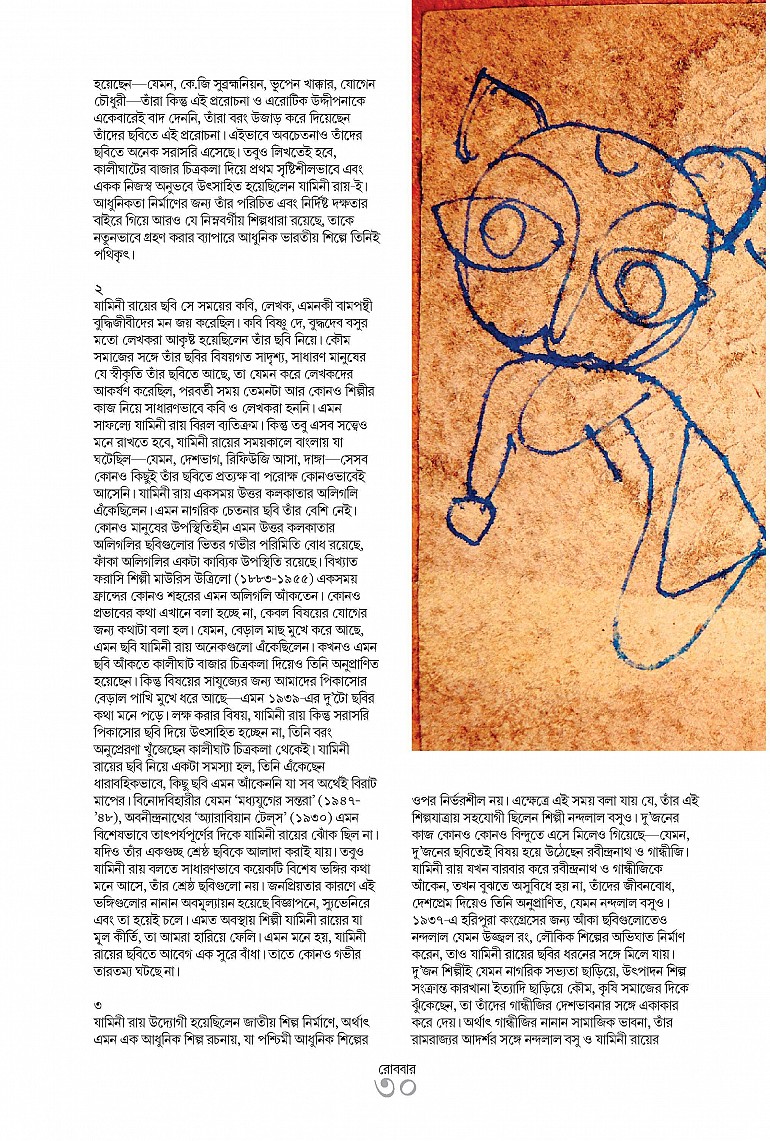 হয়েছেন—যেমন, কে.জি সুব্রহ্মনিয়ন, ভূপেন খাক্কার, যোগেন
চৌধুরী—তাঁরা কিন্তু এই প্ররোচনা ও এরোটিক উদ্দীপনাকে
একেবারেই বাদ দেননি, তাঁরা বরং উজাড় করে দিয়েছেন
তাঁদের ছবিতে এই প্ররোচনা। এইভাবে অবচেতনাও তাঁদের
ছবিতে অনেক সরাসরি এসেছে। তবুও লিখতেই হবে,
কালীঘাটের বাজার চিত্রকলা দিয়ে প্রথম সৃষ্টিশীলভাবে এবং
একক নিজস্ব অনুভবে উৎসাহিত হয়েছিলেন যামিনী রায়-ই।
আধুনিকতা নির্মাণের জন্য তাঁর পরিচিত এবং নির্দিষ্ট দক্ষতার
বাইরে গিয়ে আরও যে নিম্নবর্গীয় শিল্পধারা রয়েছে, তাকে
নতুনভাবে গ্রহণ করার ব্যাপারে আধুনিক ভারতীয় শিল্পে তিনিই
পথিকৃৎ।
২
যামিনী রায়ের ছবি সে সময়ের কবি, লেখক, এমনকী বামপন্থী
বুদ্ধিজীবীদের মন জয় করেছিল। কবি বিষ্ণু দে, বুদ্ধদেব বসুর
মতো লেখকরা আকৃষ্ট হয়েছিলেন তাঁর ছবি নিয়ে। কৌম
সমাজের সঙ্গে তাঁর ছবির বিষয়গত সাদৃশ্য, সাধারণ মানুষের
যে স্বীকৃতি তাঁর ছবিতে আছে, তা যেমন করে লেখকদের
আকর্ষণ করেছিল, পরবর্তী সময় তেমনটা আর কোনও শিল্পীর
কাজ নিয়ে সাধারণভাবে কবি ও লেখকরা হননি। এমন
সাফল্যে যামিনী রায় বিরল ব্যতিক্রম। কিন্তু তবু এসব সত্ত্বেও
মনে রাখতে হবে, যামিনী রায়ের সময়কালে বাংলায় যা
ঘটেছিল—যেমন, দেশভাগ, রিফিউজি আসা, দাঙ্গা—সেসব
কোনও কিছুই তাঁর ছবিতে প্রত্যক্ষ বা পরোক্ষ কোনওভাবেই
আসেনি। যামিনী রায় একসময় উত্তর কলকাতার অলিগলি
এঁকেছিলেন। এমন নাগরিক চেতনার ছবি তাঁর বেশি নেই।
কোনও মানুষের উপস্থিতিহীন এমন উত্তর কলকাতার
অলিগলির ছবিগুলোর ভিতর গভীর পরিমিতি বোধ রয়েছে,
ফাঁকা অলিগলির একটা কাব্যিক উপস্থিতি রয়েছে। বিখ্যাত
ফরাসি শিল্পী মাউরিস উত্রিলো (১৮৮৩-১৯৫৫) একসময়
ফ্রান্সের কোনও শহরের এমন অলিগলি আঁকতেন। কোনও
প্রভাবের কথা এখানে বলা হচ্ছে না, কেবল বিষয়ের যোগের
জন্য কথাটা বলা হল। যেমন, বেড়াল মাছ মুখে করে আছে,
এমন ছবি যামিনী রায় অনেকগুলো এঁকেছিলেন। কখনও এমন
ছবি আঁকতে কালীঘাট বাজার চিত্রকলা দিয়েও তিনি অনুপ্রাণিত
হয়েছেন। কিন্তু বিষয়ের সাযুজ্যের জন্য আমাদের পিকাসোর
বেড়াল পাখি মুখে ধরে আছে—এমন ১৯৩৯-এর দু'টো ছবির
কথা মনে পড়ে। লক্ষ করার বিষয়, যামিনী রায় কিন্তু সরাসরি
পিকাসোর ছবি দিয়ে উৎসাহিত হচ্ছেন না, তিনি বরং
অনুপ্রেরণা খুঁজেছেন কালীঘাট চিত্রকলা থেকেই। যামিনী
রায়ের ছবি নিয়ে একটা সমস্যা হল, তিনি এঁকেছেন
ধারাবাহিকভাবে, কিছু ছবি এমন আঁকেননি যা সব অর্থেই বিরাট
মাপের। বিনোদবিহারীর যেমন 'মধ্যযুগের সন্তরা' (১৯৪৭-
'৪৮), অবনীন্দ্রনাথের 'অ্যারাবিয়ান টেল্‌স' (১৯৩০) এমন
বিশেষভাবে তাৎপর্যপূর্ণের দিকে যামিনী রায়ের ঝোঁক ছিল না।
যদিও তাঁর একগুচ্ছ শ্রেষ্ঠ ছবিকে আলাদা করাই যায়। তবুও
যামিনী রায় বলতে সাধারণভাবে কয়েকটি বিশেষ ভঙ্গির কথা
মনে আসে, তাঁর শ্রেষ্ঠ ছবিগুলো নয়। জনপ্রিয়তার কারণে এই
ভঙ্গিগুলোর নানান অবমূল্যায়ন হয়েছে বিজ্ঞাপনে, স্যুভেনিরে
এবং তা হয়েই চলে। এমত অবস্থায় শিল্পী যামিনী রায়ের যা
মূল কীর্তি, তা আমরা হারিয়ে ফেলি। এমন মনে হয়, যামিনী
রায়ের ছবিতে আবেগ এক সুরে বাঁধা। তাতে কোনও গভীর
তারতম্য ঘটছে না।
৩
যামিনী রায় উদ্যোগী হয়েছিলেন জাতীয় শিল্প নির্মাণে, অর্থাৎ
এমন এক আধুনিক শিল্প রচনায়, যা পশ্চিমী আধুনিক শিল্পের
ওপর নির্ভরশীল নয়। এক্ষেত্রে এই সময় বলা যায় যে, তাঁর এই
শিল্পযাত্রায় সহযোগী ছিলেন শিল্পী নন্দলাল বসুও। দু'জনের
কাজ কোনও কোনও বিন্দুতে এসে মিলেও গিয়েছে—যেমন,
দু'জনের ছবিতেই বিষয় হয়ে উঠেছেন রবীন্দ্রনাথ ও গান্ধীজি।
যামিনী রায় যখন বারবার করে রবীন্দ্রনাথ ও গান্ধীজিকে
আঁকেন, তখন বুঝতে অসুবিধে হয় না, তাঁদের জীবনবোধ,
দেশপ্রেম দিয়েও তিনি অনুপ্রাণিত, যেমন নন্দলাল বসুও।
১৯৩৭-এ হরিপুরা কংগ্রেসের জন্য আঁকা ছবিগুলোতেও
নন্দলাল যেমন উজ্জ্বল রং, লৌকিক শিল্পের অভিঘাত নির্মাণ
করেন, তাও যামিনী রায়ের ছবির ধরনের সঙ্গে মিলে যায়।
দু'জন শিল্পীই যেমন নাগরিক সভ্যতা ছাড়িয়ে, উৎপাদন শিল্প
সংক্রান্ত কারখানা ইত্যাদি ছাড়িয়ে কৌম, কৃষি সমাজের দিকে
ঝুঁকেছেন, তা তাঁদের গান্ধীজির দেশভাবনার সঙ্গে একাকার
করে দেয়। অর্থাৎ গান্ধীজির নানান সামাজিক ভাবনা, তাঁর
রামরাজ্যর আদর্শর সঙ্গে নন্দলাল বসু ও যামিনী রায়ের
রোববার
৩০